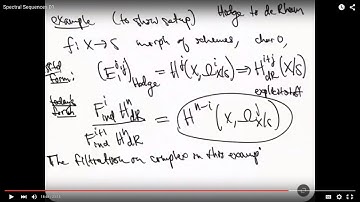 Spectral Sequences 01
example (to show setup) Hodge to de Rham
f: X → S morph of schemes, char 0,
std form: (E_1^{i,j})_{Hodge} = H^j(X, Ω^i_{X/S}) ⇒ H^{i+j}_{dR}(X/S)
today's form F^i_{ind} H^n_{dR} / F^{i+1}_{ind} H^n_{dR} = H^{n-i}(X, Ω^i_{X/S})
The filtration on complex in this examp